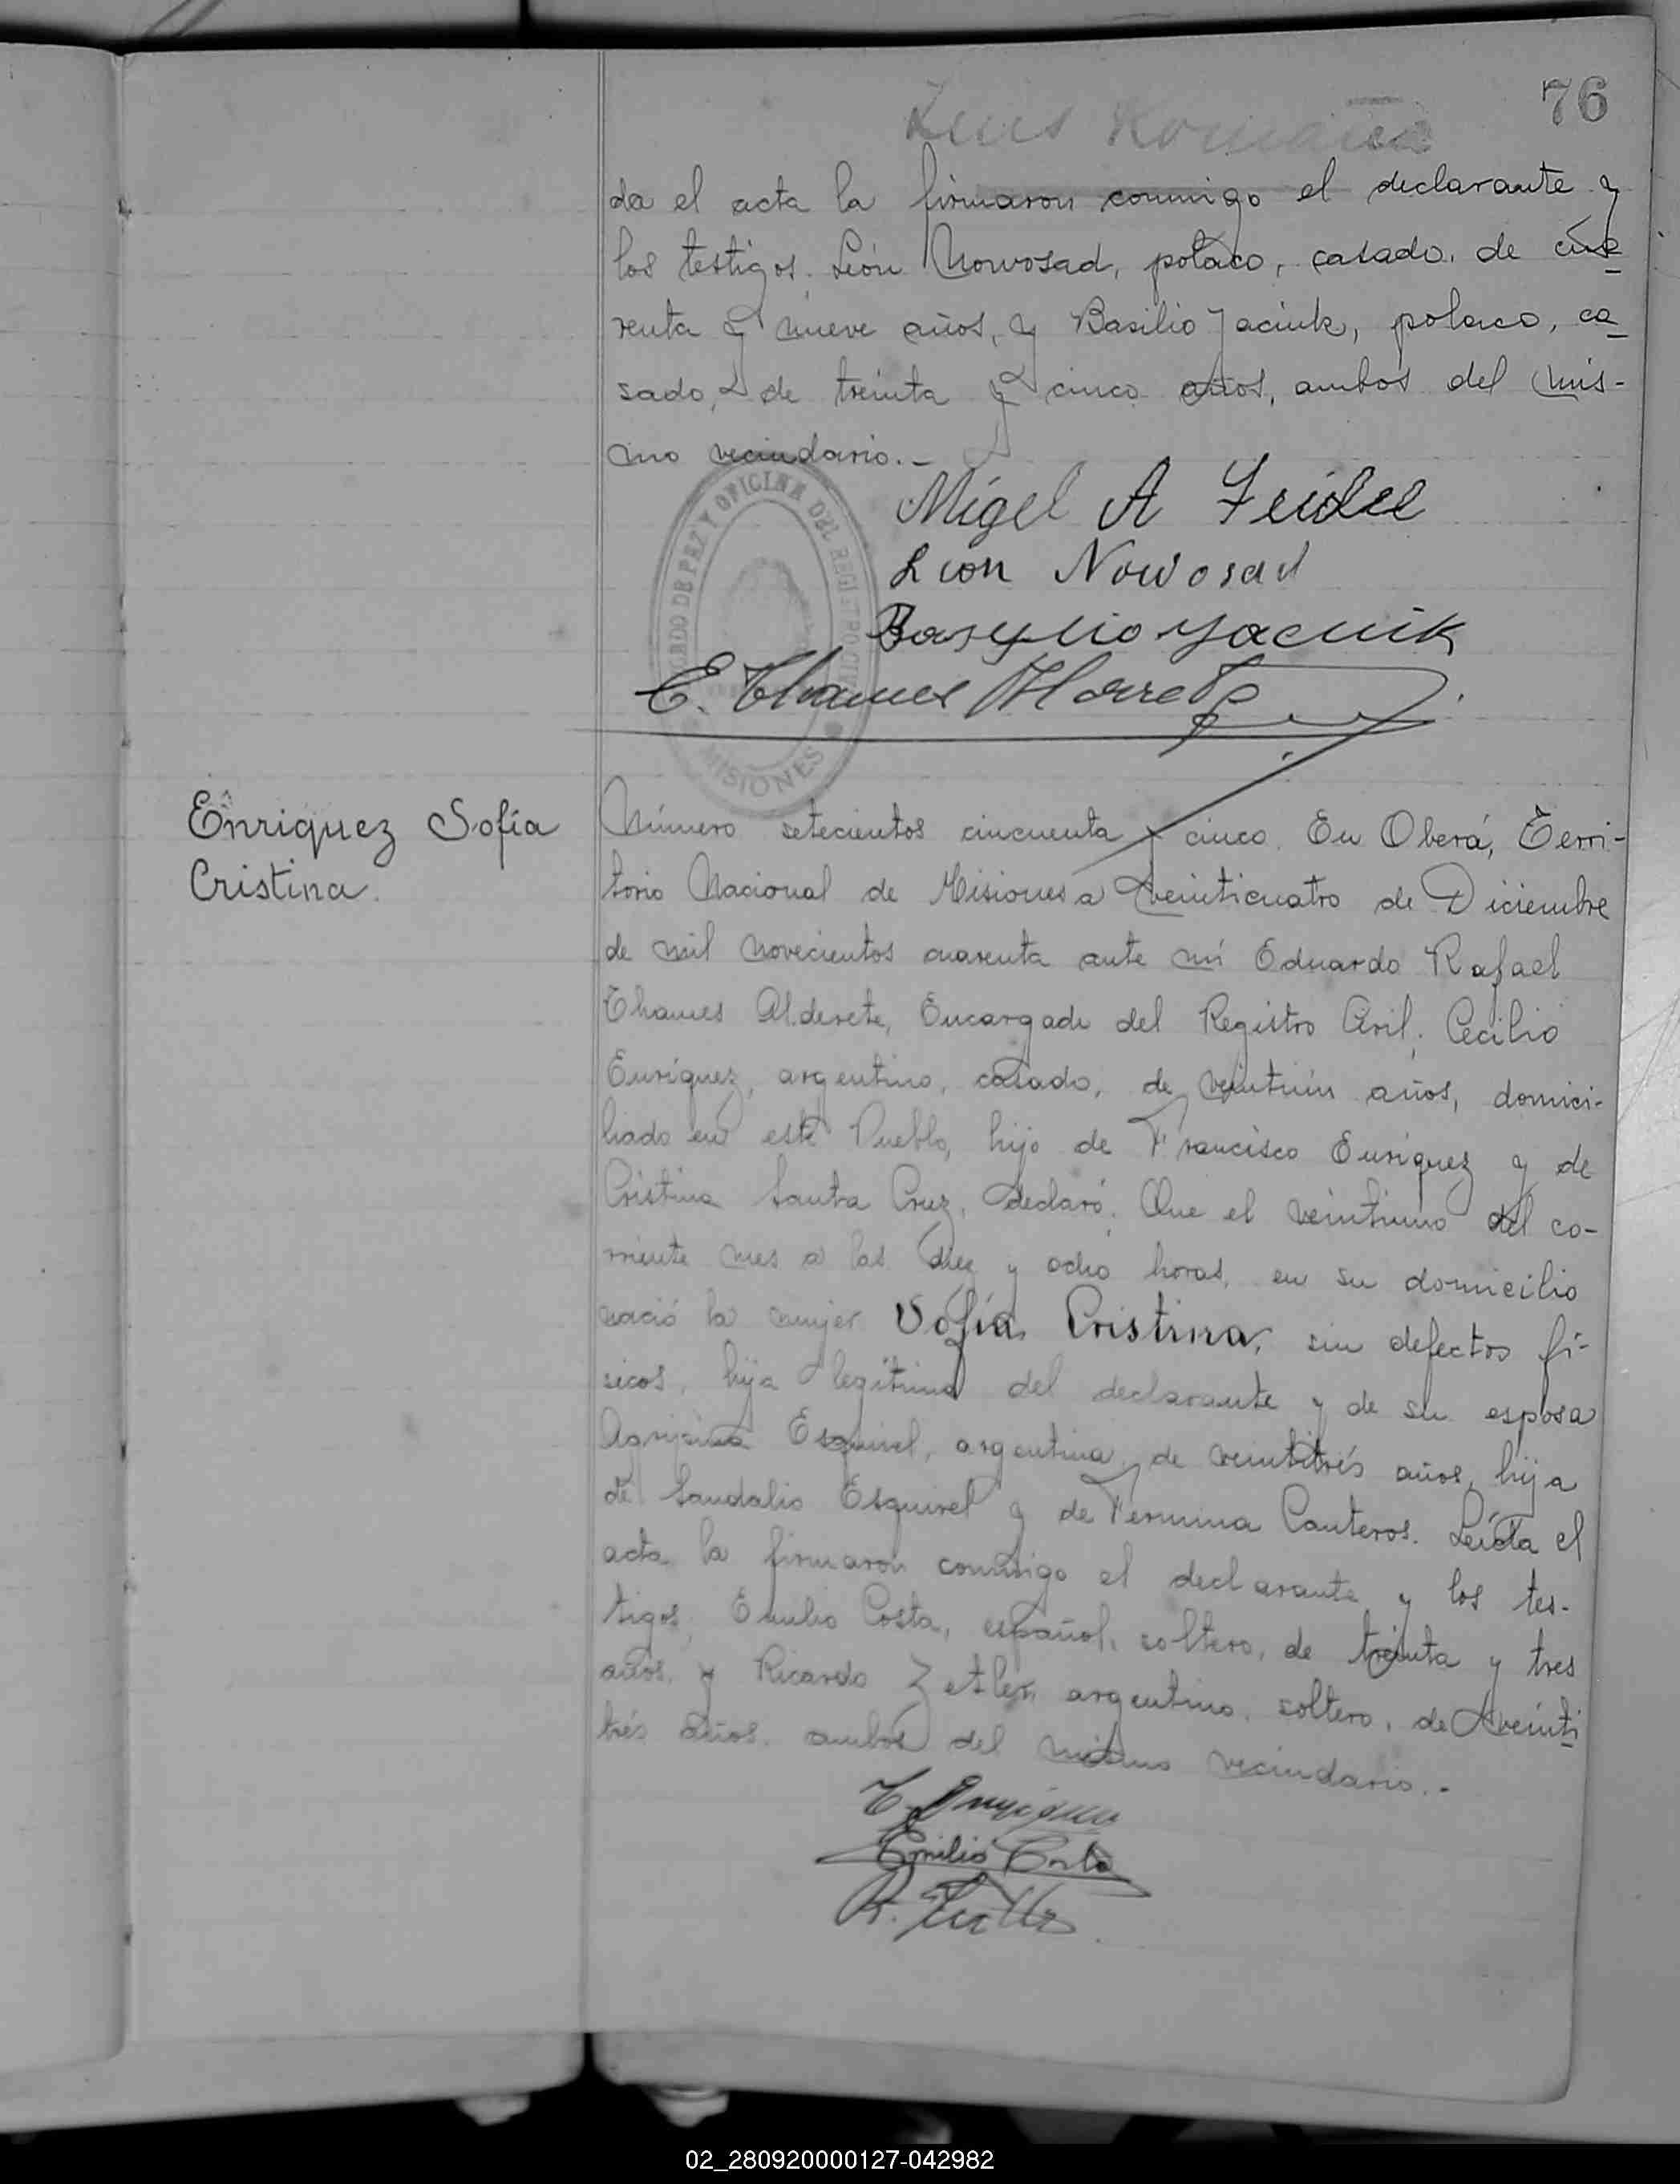 76
Luis Romaña
da el acta la firmaron conmigo el declarante y
los testigos. León Nowosad, polaco, casado, de cua
renta y nueve años, y Basilio Jaciuk, polaco, ca
sado, de treinta y cinco años, ambos del mis-
mo vecindario.-
JUZGADO DE PAZ Y OFICINA DEL REGISTRO CIVIL
MISIONES
Migel A Feidel
Leon Nowosad
Basylio Yacuik
E. Thames Alderete
Enriquez Sofía
Cristina.
Número setecientos cincuenta y cinco. En Oberá, Terri-
torio Nacional de Misiones a veinticuatro de Diciembre
de mil novecientos cuarenta ante mí Eduardo Rafael
Thames Alderete, Encargado del Registro Civil, Cecilio
Enriquez, argentino, casado, de veintiún años, domici-
liado en este Pueblo, hijo de Francisco Enriquez y de
Cristina Santa Cruz, declaró: Que el veintiuno del co-
rriente mes a las diez y ocho horas, en su domicilio
nació la mujer Sofía Cristina, sin defectos fí-
sicos, hija legítima del declarante y de su esposa
Agripina Esquivel, argentina, de veintitrés años, hija
de Sandalio Esquivel y de Fermina Canteros. Leída el
acta la firmaron conmigo el declarante y los tes-
tigos, Emilio Costa, español, soltero, de treinta y tres
años, y Ricardo Zetler, argentino, soltero, de veinti
trés años, ambos del mismo vecindario.-
C. Enriquez
Emilio Costa
02_280920000127-042982